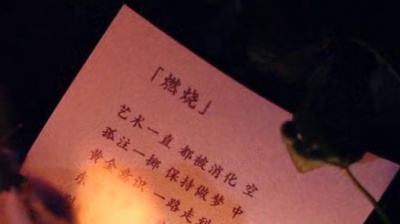 「燃烧」
艺术一直 都被消化 空
孤注一掷 保持做梦 中
黄金意识 一路走到
东